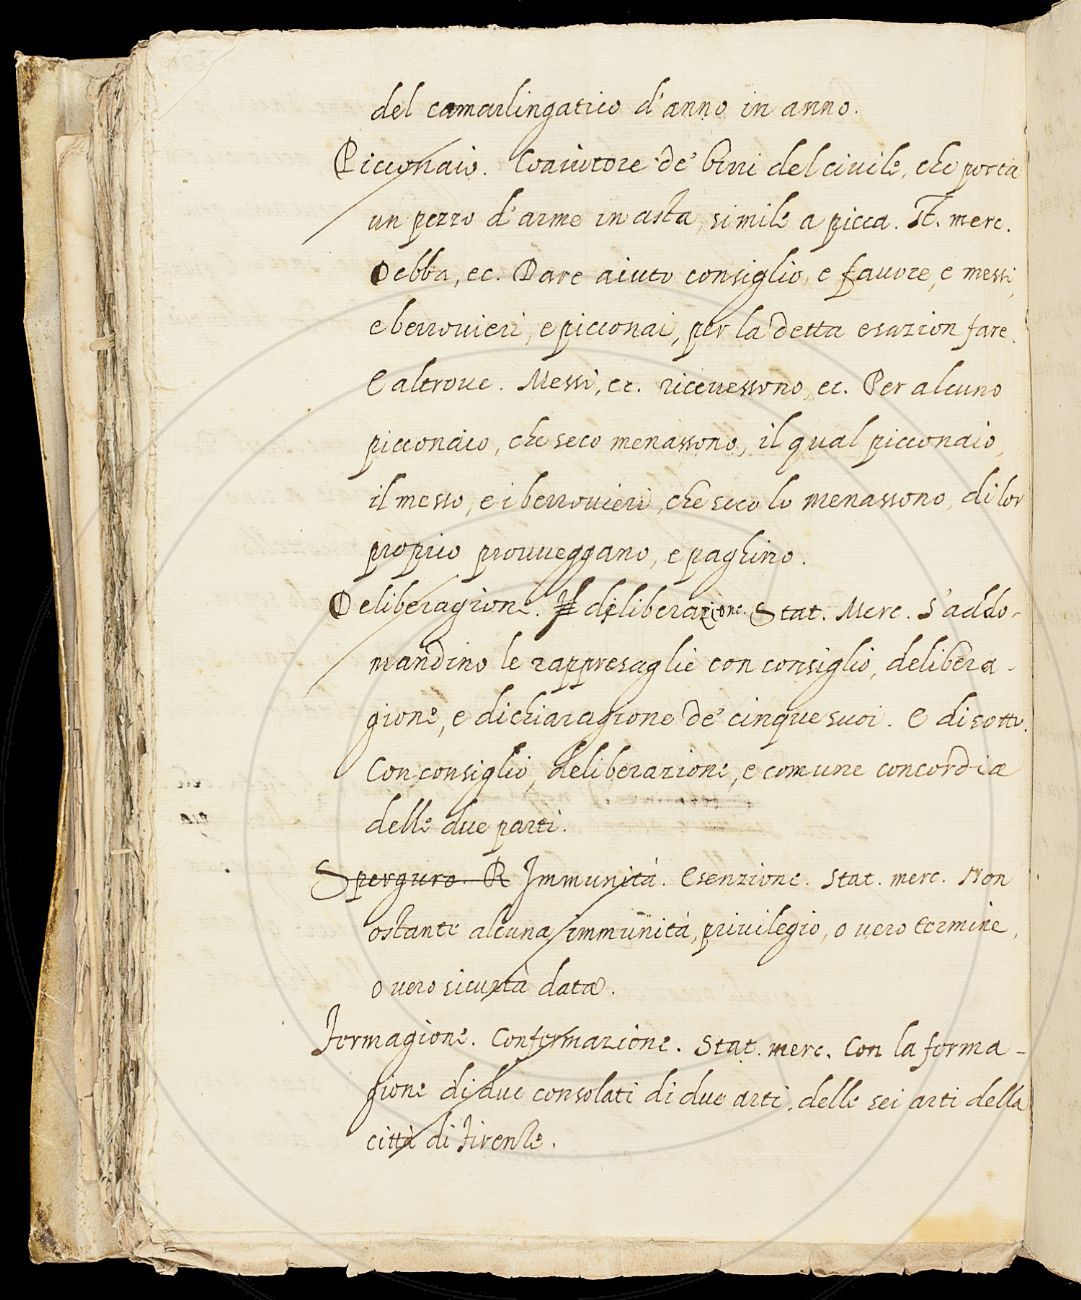 del camarlingatico d'anno in anno.
Picconaio. Coaiutore de' birri del civile, che porta
un pezzo d'arme in asta, simile a picca. St. merc.
Debba, ec. Dare aiuto consiglio, e favore, e messi,
e berrovieri, e picconai, per la detta esazion fare.
E altrove. Messi, ec. ricevessono, ec. Per alcuno
picconaio, che seco menassono, il qual picconaio,
il messo, e i berrovieri, che seco lo menassono, di lor
proprio provveggano, e paghino.
Deliberagione. deliberazione. Stat. Merc. S'addo-
mandino le rappresaglie con consiglio, delibera-
gione, e dichiaragione de' cinque suoi. E di sotto.
Con consiglio, deliberazione, e comune concordia
delle due parti.
Sperguro. R Immunità. Esenzione. Stat. merc. Non
ostante alcuna immunità, privilegio, o vero termine,
o vero sicurtà data.
Fermagione. Confermazione. Stat. merc. Con la ferma-
gione di due consolati di due arti, delle sei arti della
città di Firenze.